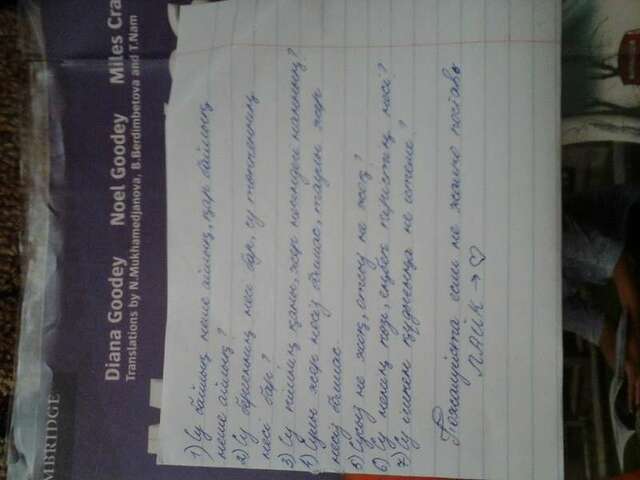 MBRIDGE
Diana Goodey Noel Goodey Miles Cra
Translations by N.Mukhamedjanova, B.Berdimbetova and T.Nam
1) Су байлық неше айлық, қар байлық
неше айлық?
2) Су бергеннің несі бар, су төккеннің
несі бар?
3) Су кімнің қаны, жер несіндегі нанның?
4) Сулы жер несіз болмас, таулы жер
несіз болмас.
5) Сусыз не жоқ, отсыз не жоқ?
6) Су ненің көзі, еңбек терістің несі?
7) Су ішкен құдығыңа не істеме?
Пожалуйста если не жалко поставь
ЛАЙК → ♡